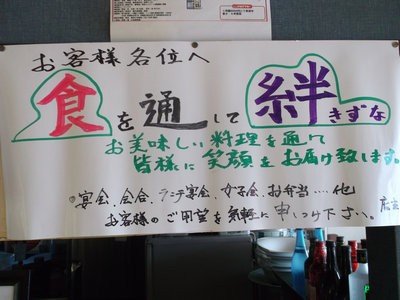 お客様各位へ
食を通して絆
きずな
お美味しい料理を通じて
皆様に笑顔をお届け致します。
宴会、会合、ランチ宴会、女子会、お弁当……他
お客様のご用望を気軽に申しつけ下さい。
店主